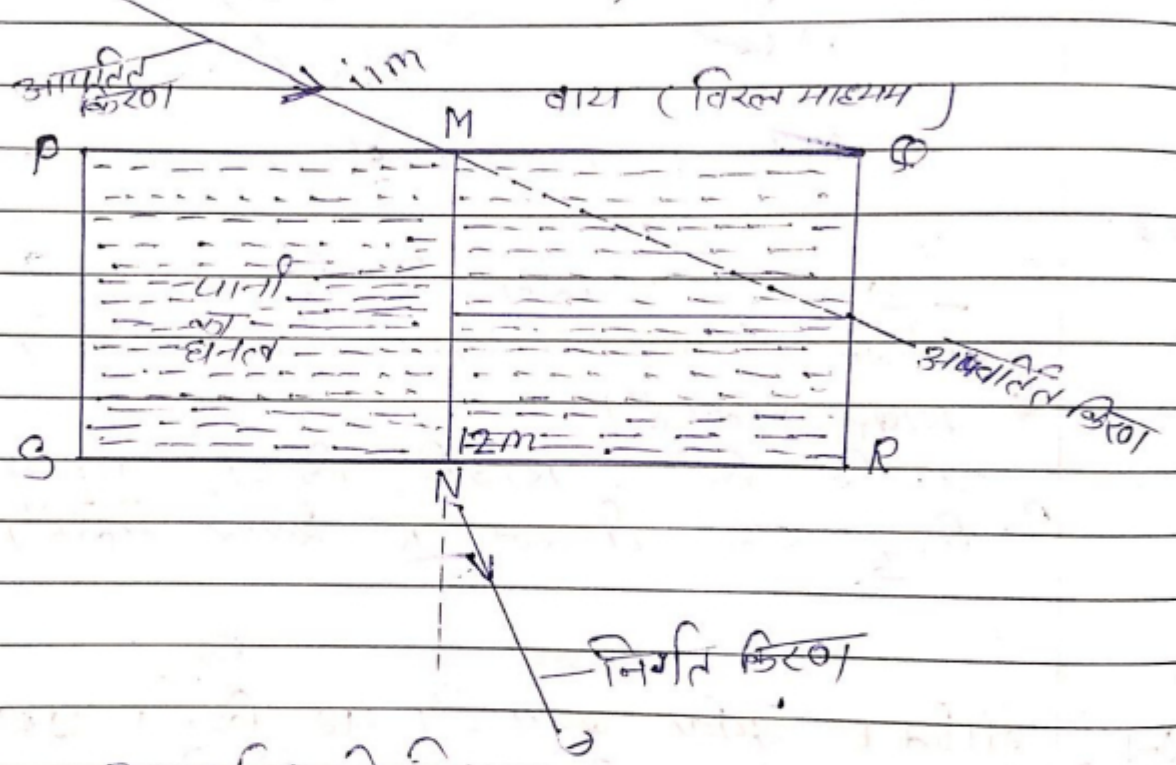 आपतित
किरण
i1m
वायु (विरल माध्यम)
M
P
Q
पानी
का
घनत्व
अपवर्तित किरण
12m
S
R
N
निर्गत किरण